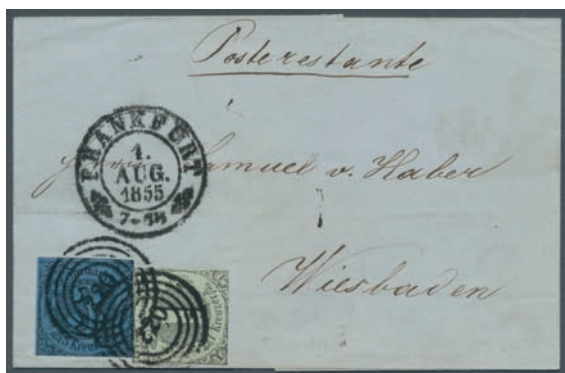 Poste restante
FRANKFURT
1.
AUG.
1855
Samuel v. Haber
Wiesbaden
220
220
3 Kreuzer
1 Kreuzer